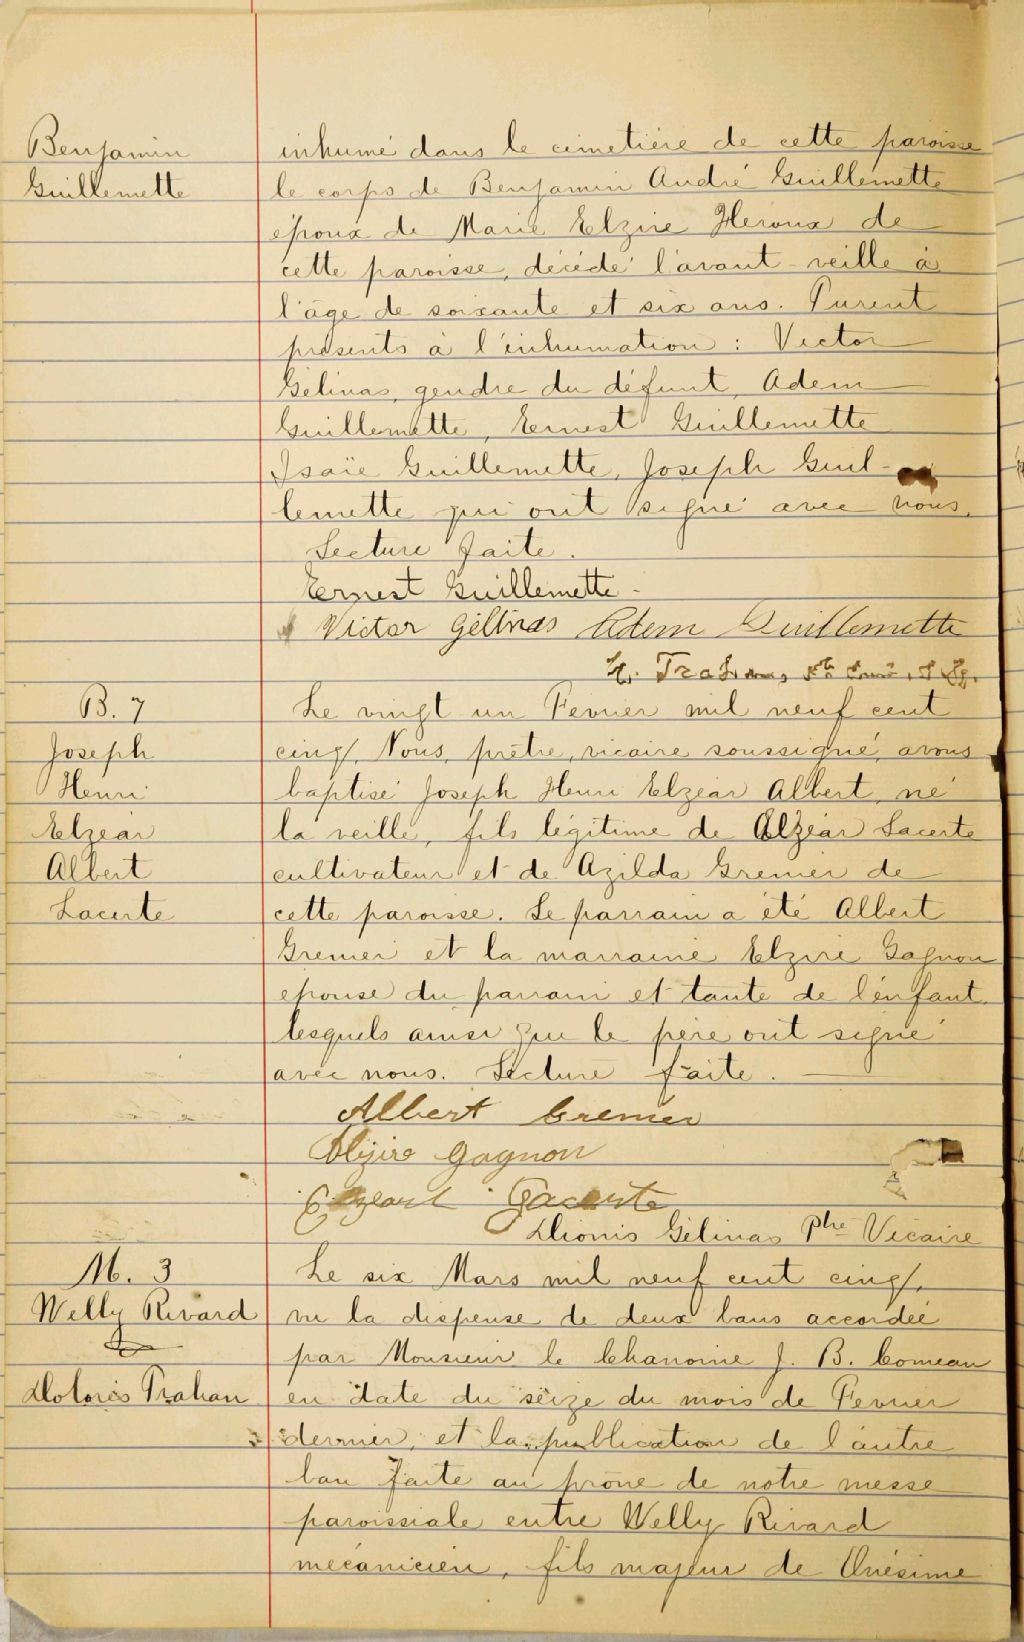 Benjamin
Guillemette
inhumé dans le cimetière de cette paroisse
le corps de Benjamin André Guillemette
époux de Marie Elzire Heroux de
cette paroisse, décédé l'avant-veille à
l'âge de soixante et six ans. Furent
présents à l'inhumation : Victor
Gélinas, gendre du défunt, Adem
Guillemette, Ernest Guillemette
Isaïe Guillemette, Joseph Guil-
lemette qui ont signé avec nous.
Lecture faite.
Ernest Guillemette.
Victor Gélinas Adem Guillemette
B. 7
Joseph
Henri
Elzéar
Albert
Lacerte
Le vingt-un Fevrier mil neuf cent
cinq, Nous, prêtre, vicaire soussigné, avons
baptisé Joseph Henri Elzéar Albert, né
la veille, fils légitime de Elzéar Lacerte
cultivateur et de Azilda Grenier de
cette paroisse. Le parrain a été Albert
Grenier et la marraine Elzire Gagnon
epouse du parrain et tante de l'enfant,
lesquels ainsi que le père ont signé
avec nous. Lecture faite.
Albert Grenier
Elzire Gagnon
Elzeard Lacerte
Dionis Gélinas Ptre Vicaire
M. 3
Welly Rivard
&
Dolorès Trahan
Le six Mars mil neuf cent cinq,
vu la dispense de deux bans accordée
par Monsieur le Chanoine J. B. Comeau
en date du seize du mois de Fevrier
dernier, et la publication de l'autre
ban faite au prône de notre messe
paroissiale entre Welly Rivard
mécanicien, fils majeur de Onésime